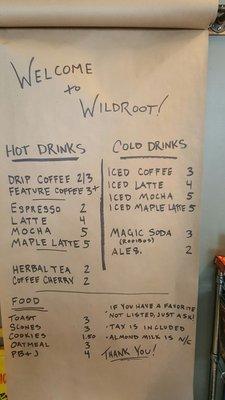 WELCOME
to
WILDROOT!
HOT DRINKS
DRIP COFFEE 2/3
FEATURE COFFEE 3+
ESPRESSO 2
LATTE 4
MOCHA 5
MAPLE LATTE 5
HERBAL TEA 2
COFFEE CHERRY 2
COLD DRINKS
ICED COFFEE 3
ICED LATTE 4
ICED MOCHA 5
ICED MAPLE LATTE 5
MAGIC SODA 3
(ROOIBOS)
ALES. 2
FOOD
TOAST 3
SCONES 3
COOKIES 1.50
OATMEAL 3
PB+J 4
· IF YOU HAVE A FAVORITE
NOT LISTED, JUST ASK!
· TAX IS INCLUDED
· ALMOND MILK IS N/C
THANK YOU!